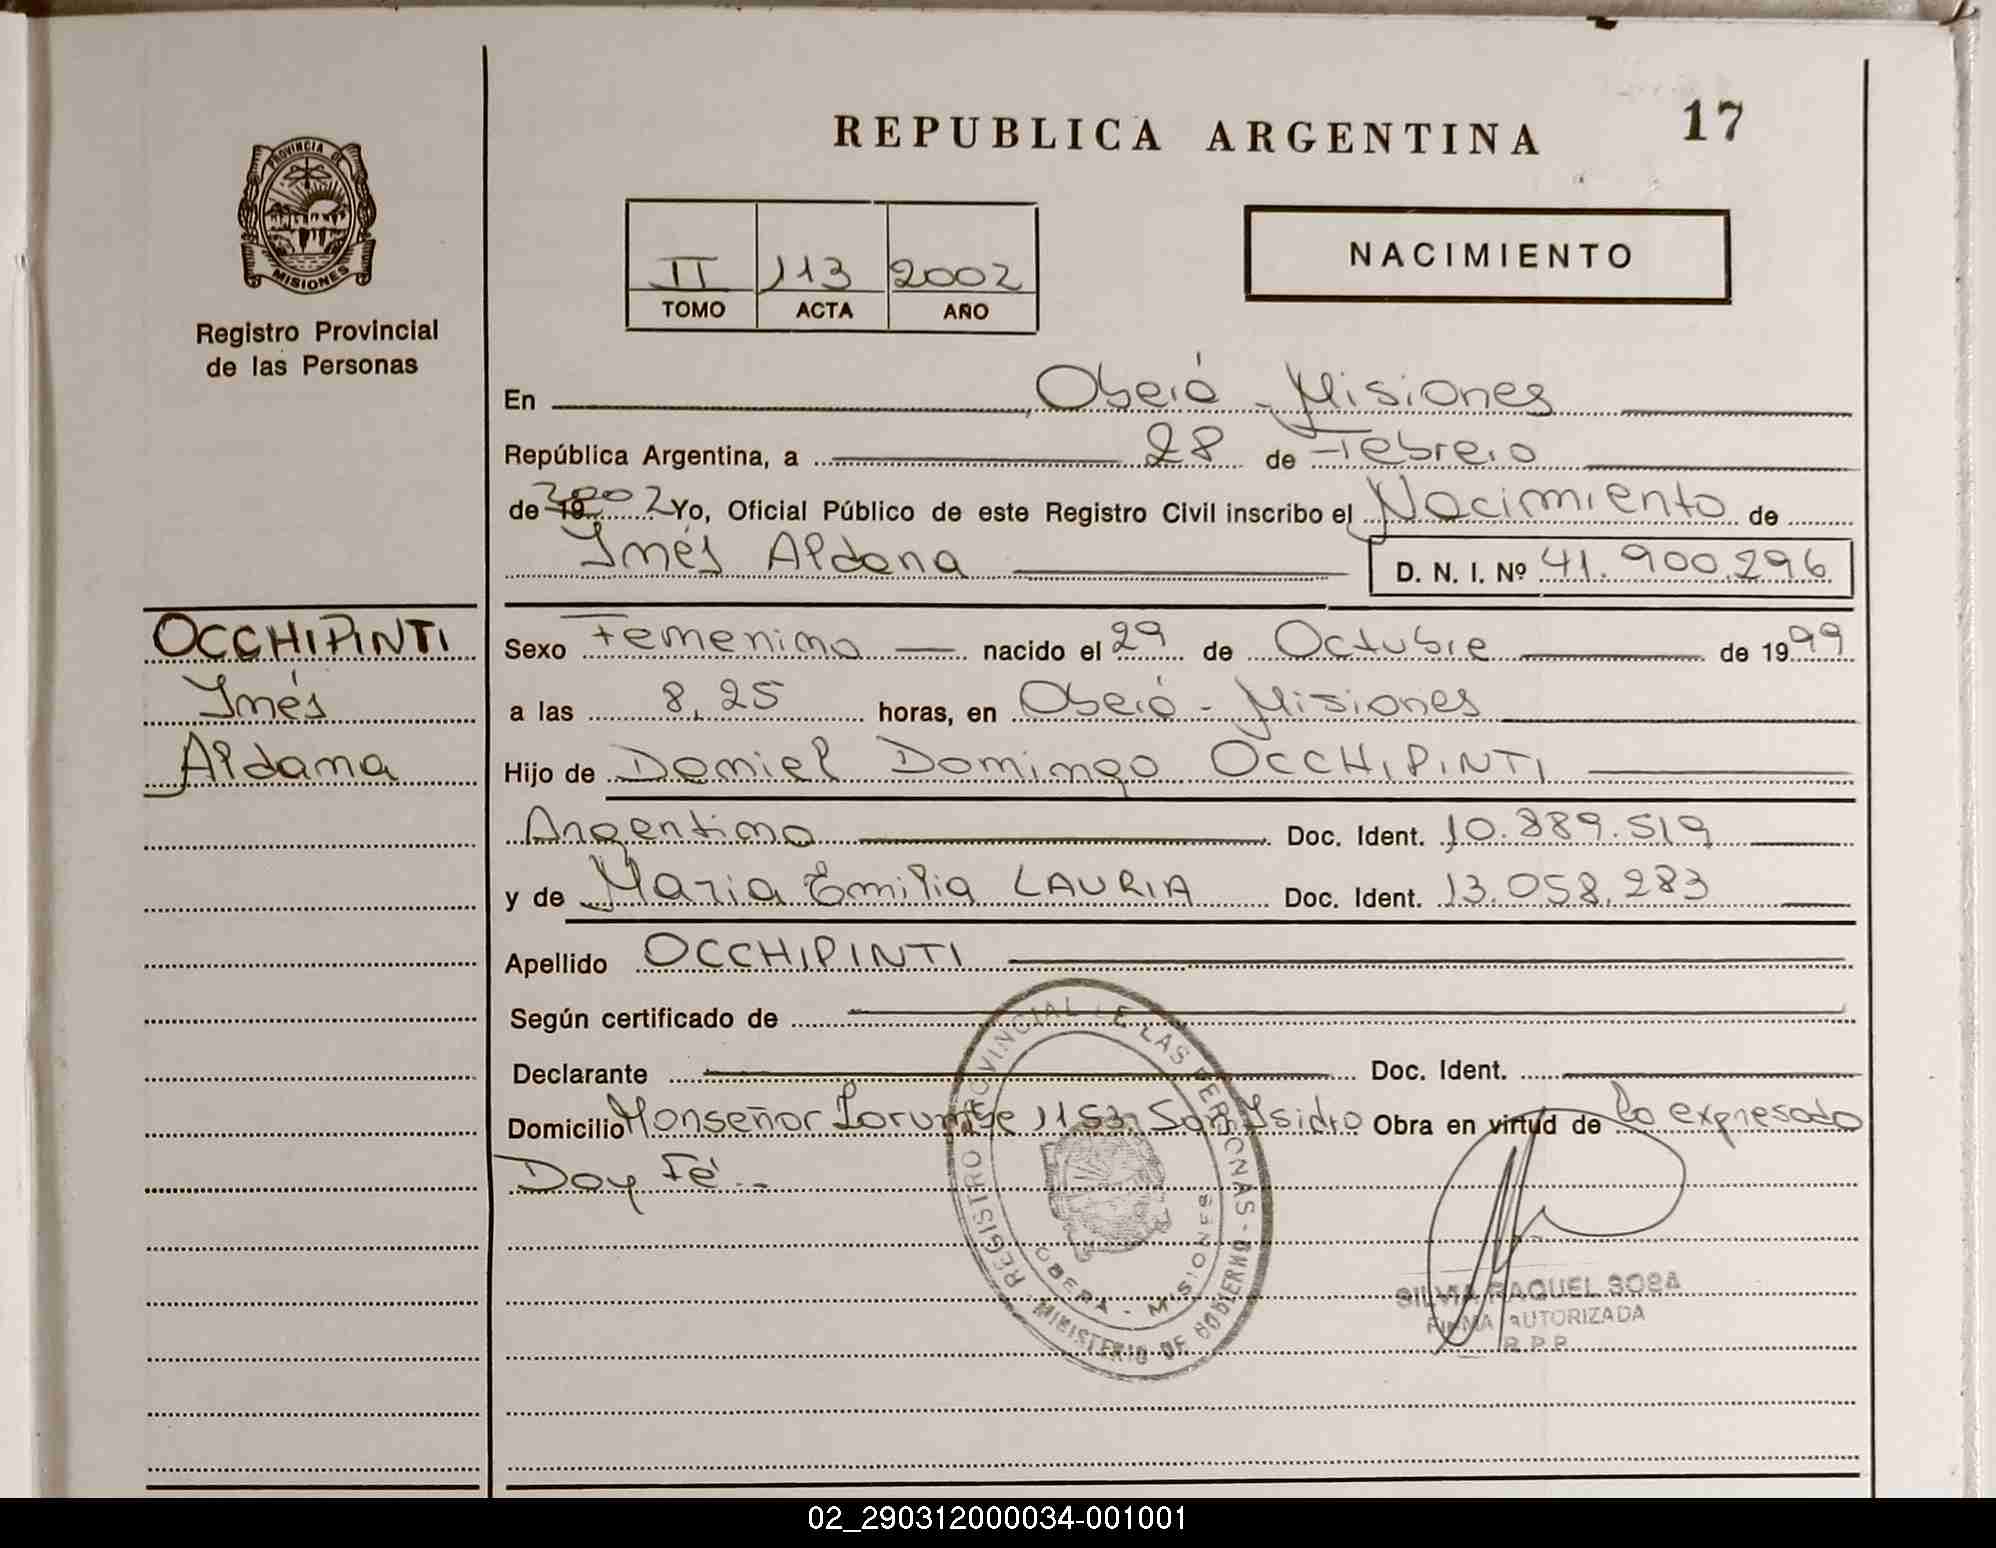 REPUBLICA ARGENTINA
17
PROVINCIA DE
MISIONES
Registro Provincial
de las Personas
II 113 2002
TOMO ACTA AÑO
NACIMIENTO
En Oberá - Misiones
República Argentina, a 28 de Febrero
de 19 2002 Yo, Oficial Público de este Registro Civil inscribo el Nacimiento de
Inés Aldana D. N. I. Nº 41.900.296
OCCHIPINTI
Inés
Aldana
Sexo Femenino nacido el 29 de Octubre de 1999
a las 8,25 horas, en Oberá - Misiones
Hijo de Daniel Domingo OCCHIPINTI
Argentino Doc. Ident. 10.889.519
y de Maria Emilia LAURIA Doc. Ident. 13.058.283
Apellido OCCHIPINTI
Según certificado de
Declarante Doc. Ident.
Domicilio Monseñor 1153 San Isidro Obra en virtud de lo expresado
Doy Fé.-
REGISTRO PROVINCIAL DE LAS PERSONAS - MINISTERIO DE GOBIERNO
OBERA - MISIONES
SILVIA RAQUEL SOSA
FIRMA AUTORIZADA
R.P.P.
02_290312000034-001001